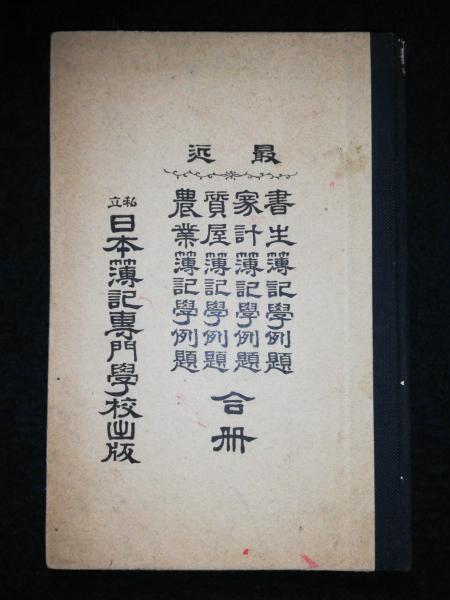 最近
書生簿記學例題
家計簿記學例題
質屋簿記學例題
農業簿記學例題
合册
私立
日本簿記專門學校出版